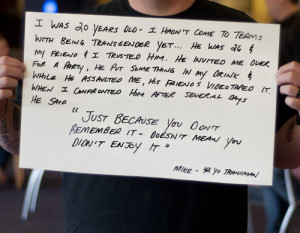 I WAS 20 YEARS OLD - I HADN'T COME TO TERMS
WITH BEING TRANSGENDER YET... HE WAS 26 &
MY FRIEND & I TRUSTED HIM. HE INVITED ME OVER
FOR A PARTY, HE PUT SOMETHING IN MY DRINK &
WHILE HE ASSAULTED ME, HIS FRIENDS VIDEOTAPED IT.
WHEN I CONFRONTED HIM AFTER SEVERAL DAYS
HE SAID
"JUST BECAUSE YOU DON'T
REMEMBER IT - DOESN'T MEAN YOU
DIDN'T ENJOY IT"
MIKE - YO TRANSMAN